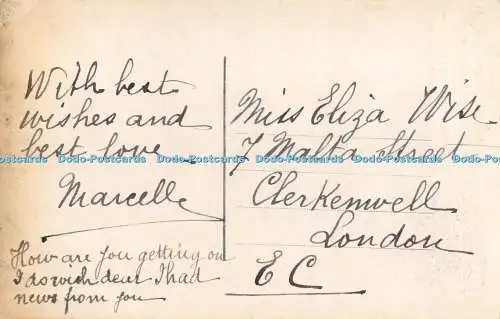 With best
wishes and
best love
Marcelle
How are you getting on
I do wish dear I had
news from you
Miss Eliza Wise
7 Malta Street
Clerkenwell
London
E C
Dodo-Postcards Dodo-Postcards Dodo-Postcards Dodo-Postcards Dodo-Postcards